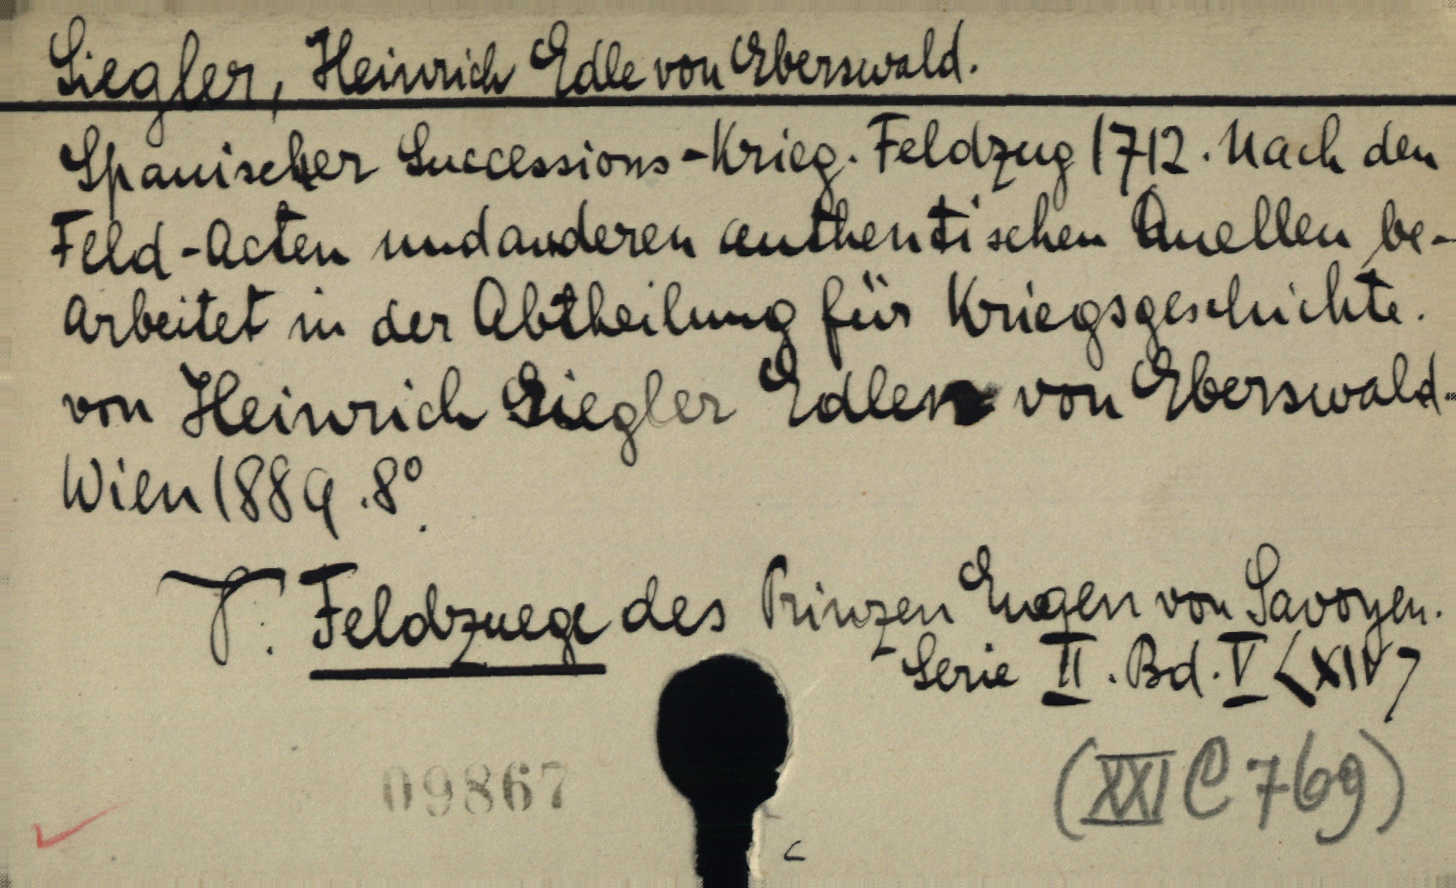 Siegler, Heinrich Edle von Eberswald.
Spanischer Successions-Krieg. Feldzug 1712. Nach den
Feld-Acten und anderen authentischen Quellen be-
arbeitet in der Abtheilung für Kriegsgeschichte.
von Heinrich Siegler Edlen von Eberswald.
Wien 1889. 8°.
V. Feldzuege des Prinzen Eugen von Savoyen.
Serie II. Bd. V <XIV>
09867
(XXI C 769)